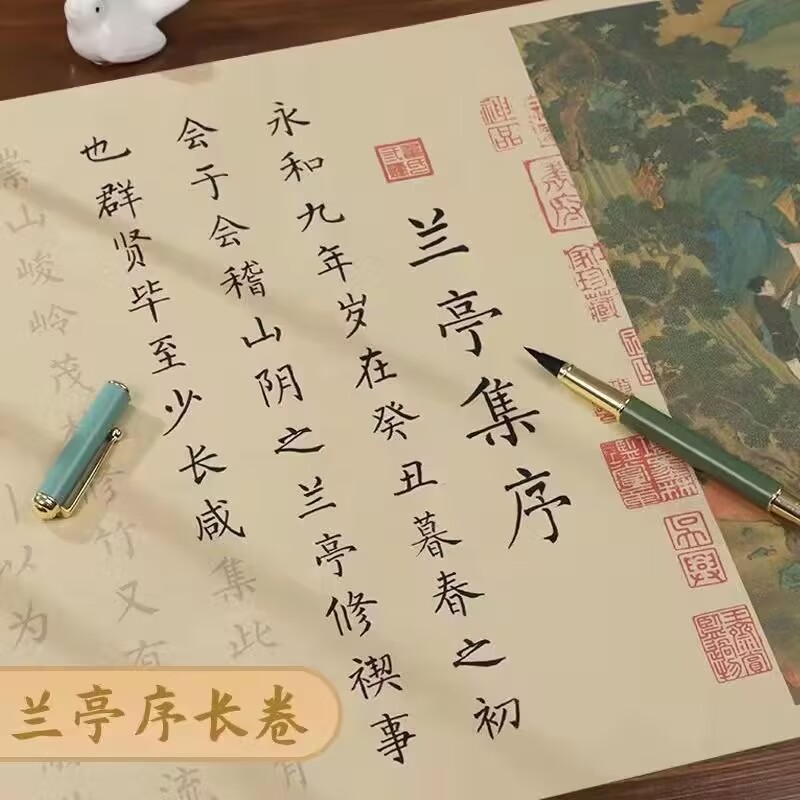 兰亭集序
永和九年岁在癸丑暮春之初
会于会稽山阴之兰亭修禊事
也群贤毕至少长咸集此有
崇山峻岭茂修竹又有流
以为
兰亭序长卷
神品
珍藏
吴兴